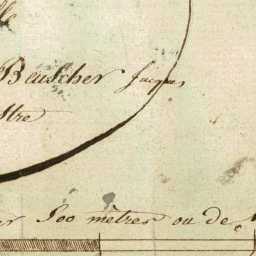 lle
Beuscher Jacques
stre
500 mètres ou de